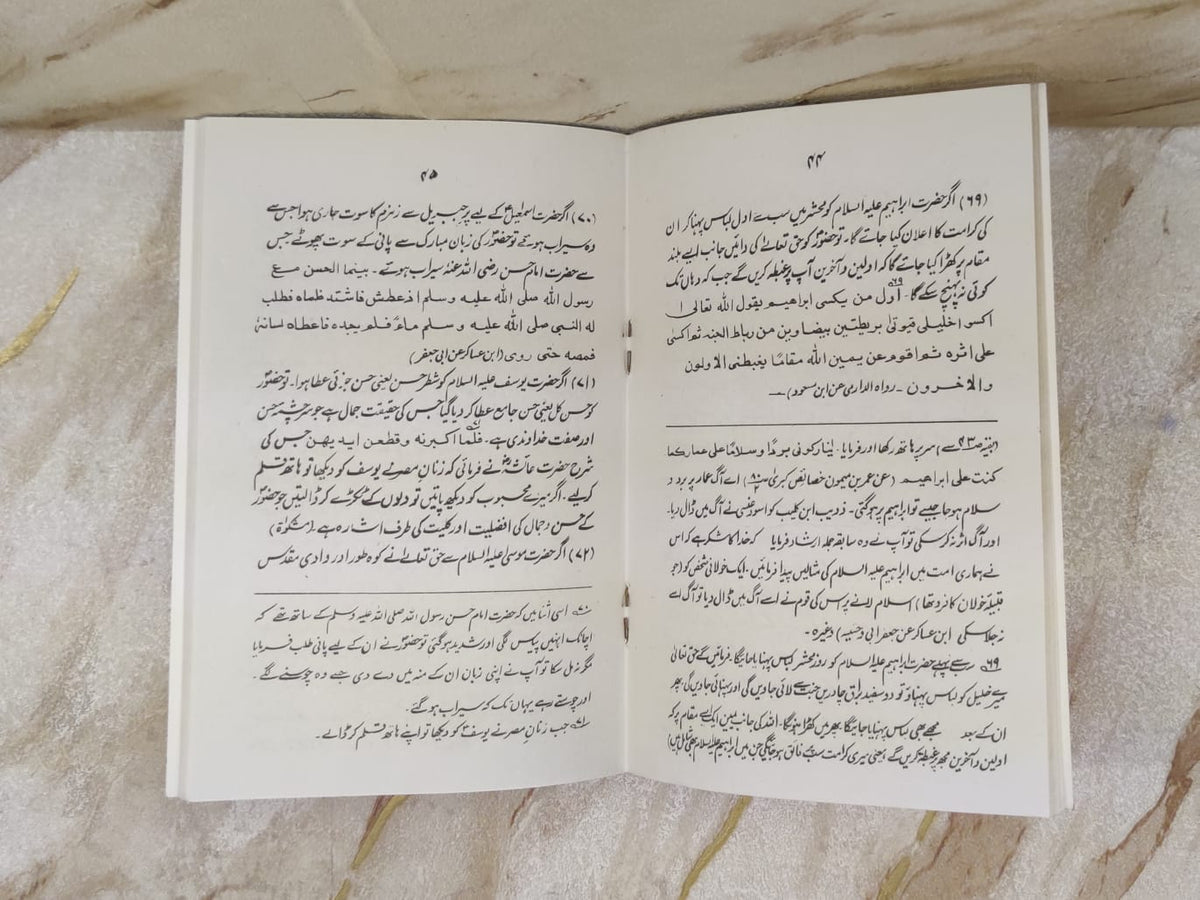 ۴۴
(۶۹) اگر حضرت ابراہیم علیہ السلام کو محشر میں سب سے اول لباس پہنا کر ان
کی کرامت کا اعلان کیا جائے گا۔ تو حضورؐ کو حق تعالےٰ کی دائیں جانب ایسے بلند
مقام پر کھڑا کیا جائے گا کہ اولین و آخرین آپ پر غبطہ کریں گے جب کہ وہاں تک
کوئی نہ پہنچ سکے گا۔ ۶۹ اول من یکسی ابراھیم یقول اللہ تعالی ا
اکسوا خلیلی فیوتی بریطتین بیضاوین من رباط الجنہ ثم اکسی
علی اثرہ ثم اقوم عن یمین اللہ مقامًا یغبطنی الاولون
والاخرون ۔ رواہ الدارمی عن ابن مسعود)
(بقیہ ص۴۳ سے) سر پر ہاتھ رکھا اور فرمایا۔ یٰنار کونی بردًا وسلامًا علی عمار کما
کنت علی ابراھیم (عن عمر بن میمون خصائص کبریٰ) اے آگ عمار پر برد و
سلام ہو جا جیسے تو ابراہیم پر ہو گئی۔ ذویب ابن کلیب کو اسود عنسی نے آگ میں ڈال دیا۔
اور آگ اثر نہ کر سکی تو آپ نے وہ سابقہ جملہ ارشاد فرمایا کہ خدا کا شکر ہے کہ اس
نے ہماری امت میں ابراہیم علیہ السلام کی مثالیں پیدا فرمائیں۔ ایک خولانی شخص کو (جو
قبیلۂ خولان کا فرد تھا) اسلام لانے پر اس کی قوم نے اسے آگ میں ڈال دیا تو آگ اسے
نہ جلا سکی ابن عساکر عن جعفر ابی وحشیہ) وغیرہ۔
۶۹ سب سے پہلے حضرت ابراہیم علیہ السلام کو روز محشر لباس پہنایا جائیگا۔ فرمائیں گے حق تعالیٰ
میرے خلیل کو لباس پہناؤ تو دو سفید براق چادریں جنت سے لائی جاویں گی اور پہنائی جاویں گی۔ پھر
ان کے بعد مجھے بھی لباس پہنایا جائیگا پھر میں کھڑا ہونگا۔ اللہ کی جانب یمین ایک ایسے مقام پر کہ
اولین و آخرین مجھ پر غبطہ کریں گے یعنی میری کرامت سب سے فائق ہو جائیگی جن میں ابراہیم علیہ السلام بھی شامل ہیں)
۴۵
(۷۰) اگر حضرت اسمٰعیلؑ کے لیے پر جبریل سے زمزم کا سوت جاری ہوا جس سے
وہ سیراب ہوئے تو حضورؐ کی زبان مبارک سے پانی کے سوت پھوٹے جس
سے حضرت امام حسن رضی اللہ عنہ سیراب ہوئے۔ بینما الحسن مع
رسول اللہ صلی اللہ علیہ وسلم اذ عطش فاشتد ظماہ فطلب
لہ النبی صلی اللہ علیہ وسلم ماءً فلم یجدہ فاعطاہ لسانہٗ
فمصہ حتی روی (ابن عساکر عن ابی جعفر)
(۷۱) اگر حضرت یوسف علیہ السلام کو شطر حسن یعنی حسن جزئی عطا ہوا۔ تو حضورؐ
کو حسن کل یعنی حسن جامع عطا کر دیا گیا جس کی حقیقت جمال ہے جو سرچشمہ حسن
اور صفت خداوندی ہے۔ فلما اکبرنہ وقطعن ایدیھن جس کی
شرح حضرت عائشہؓ نے فرمائی کہ زنان مصر نے یوسف کو دیکھا تو ہاتھ قلم
کر لیے۔ اگر میرے محبوب کو دیکھ پاتیں تو دلوں کے ٹکڑے کر ڈالتیں جو حضورؐ
کے حسن و جمال کی افضلیت اور کلیت کی طرف اشارہ ہے۔ (مشکوٰۃ)
(۷۲) اگر حضرت موسیٰ علیہ السلام سے حق تعالےٰ نے کوہ طور اور وادی مقدس
۷۰ اسی اثنا میں کہ حضرت امام حسن رسول اللہ صلی اللہ علیہ وسلم کے ساتھ تھے کہ
اچانک انہیں پیاس لگی اور شدید ہو گئی تو حضورؐ نے ان کے لیے پانی طلب فرمایا
مگر نہ مل سکا تو آپ نے اپنی زبان ان کے منہ میں دے دی جسے وہ چوسنے لگے۔
اور چوستے رہے یہاں تک کہ سیراب ہو گئے۔
۷۱ جب زنان مصر نے یوسفؑ کو دیکھا تو اپنے ہاتھ قلم کر ڈالے۔